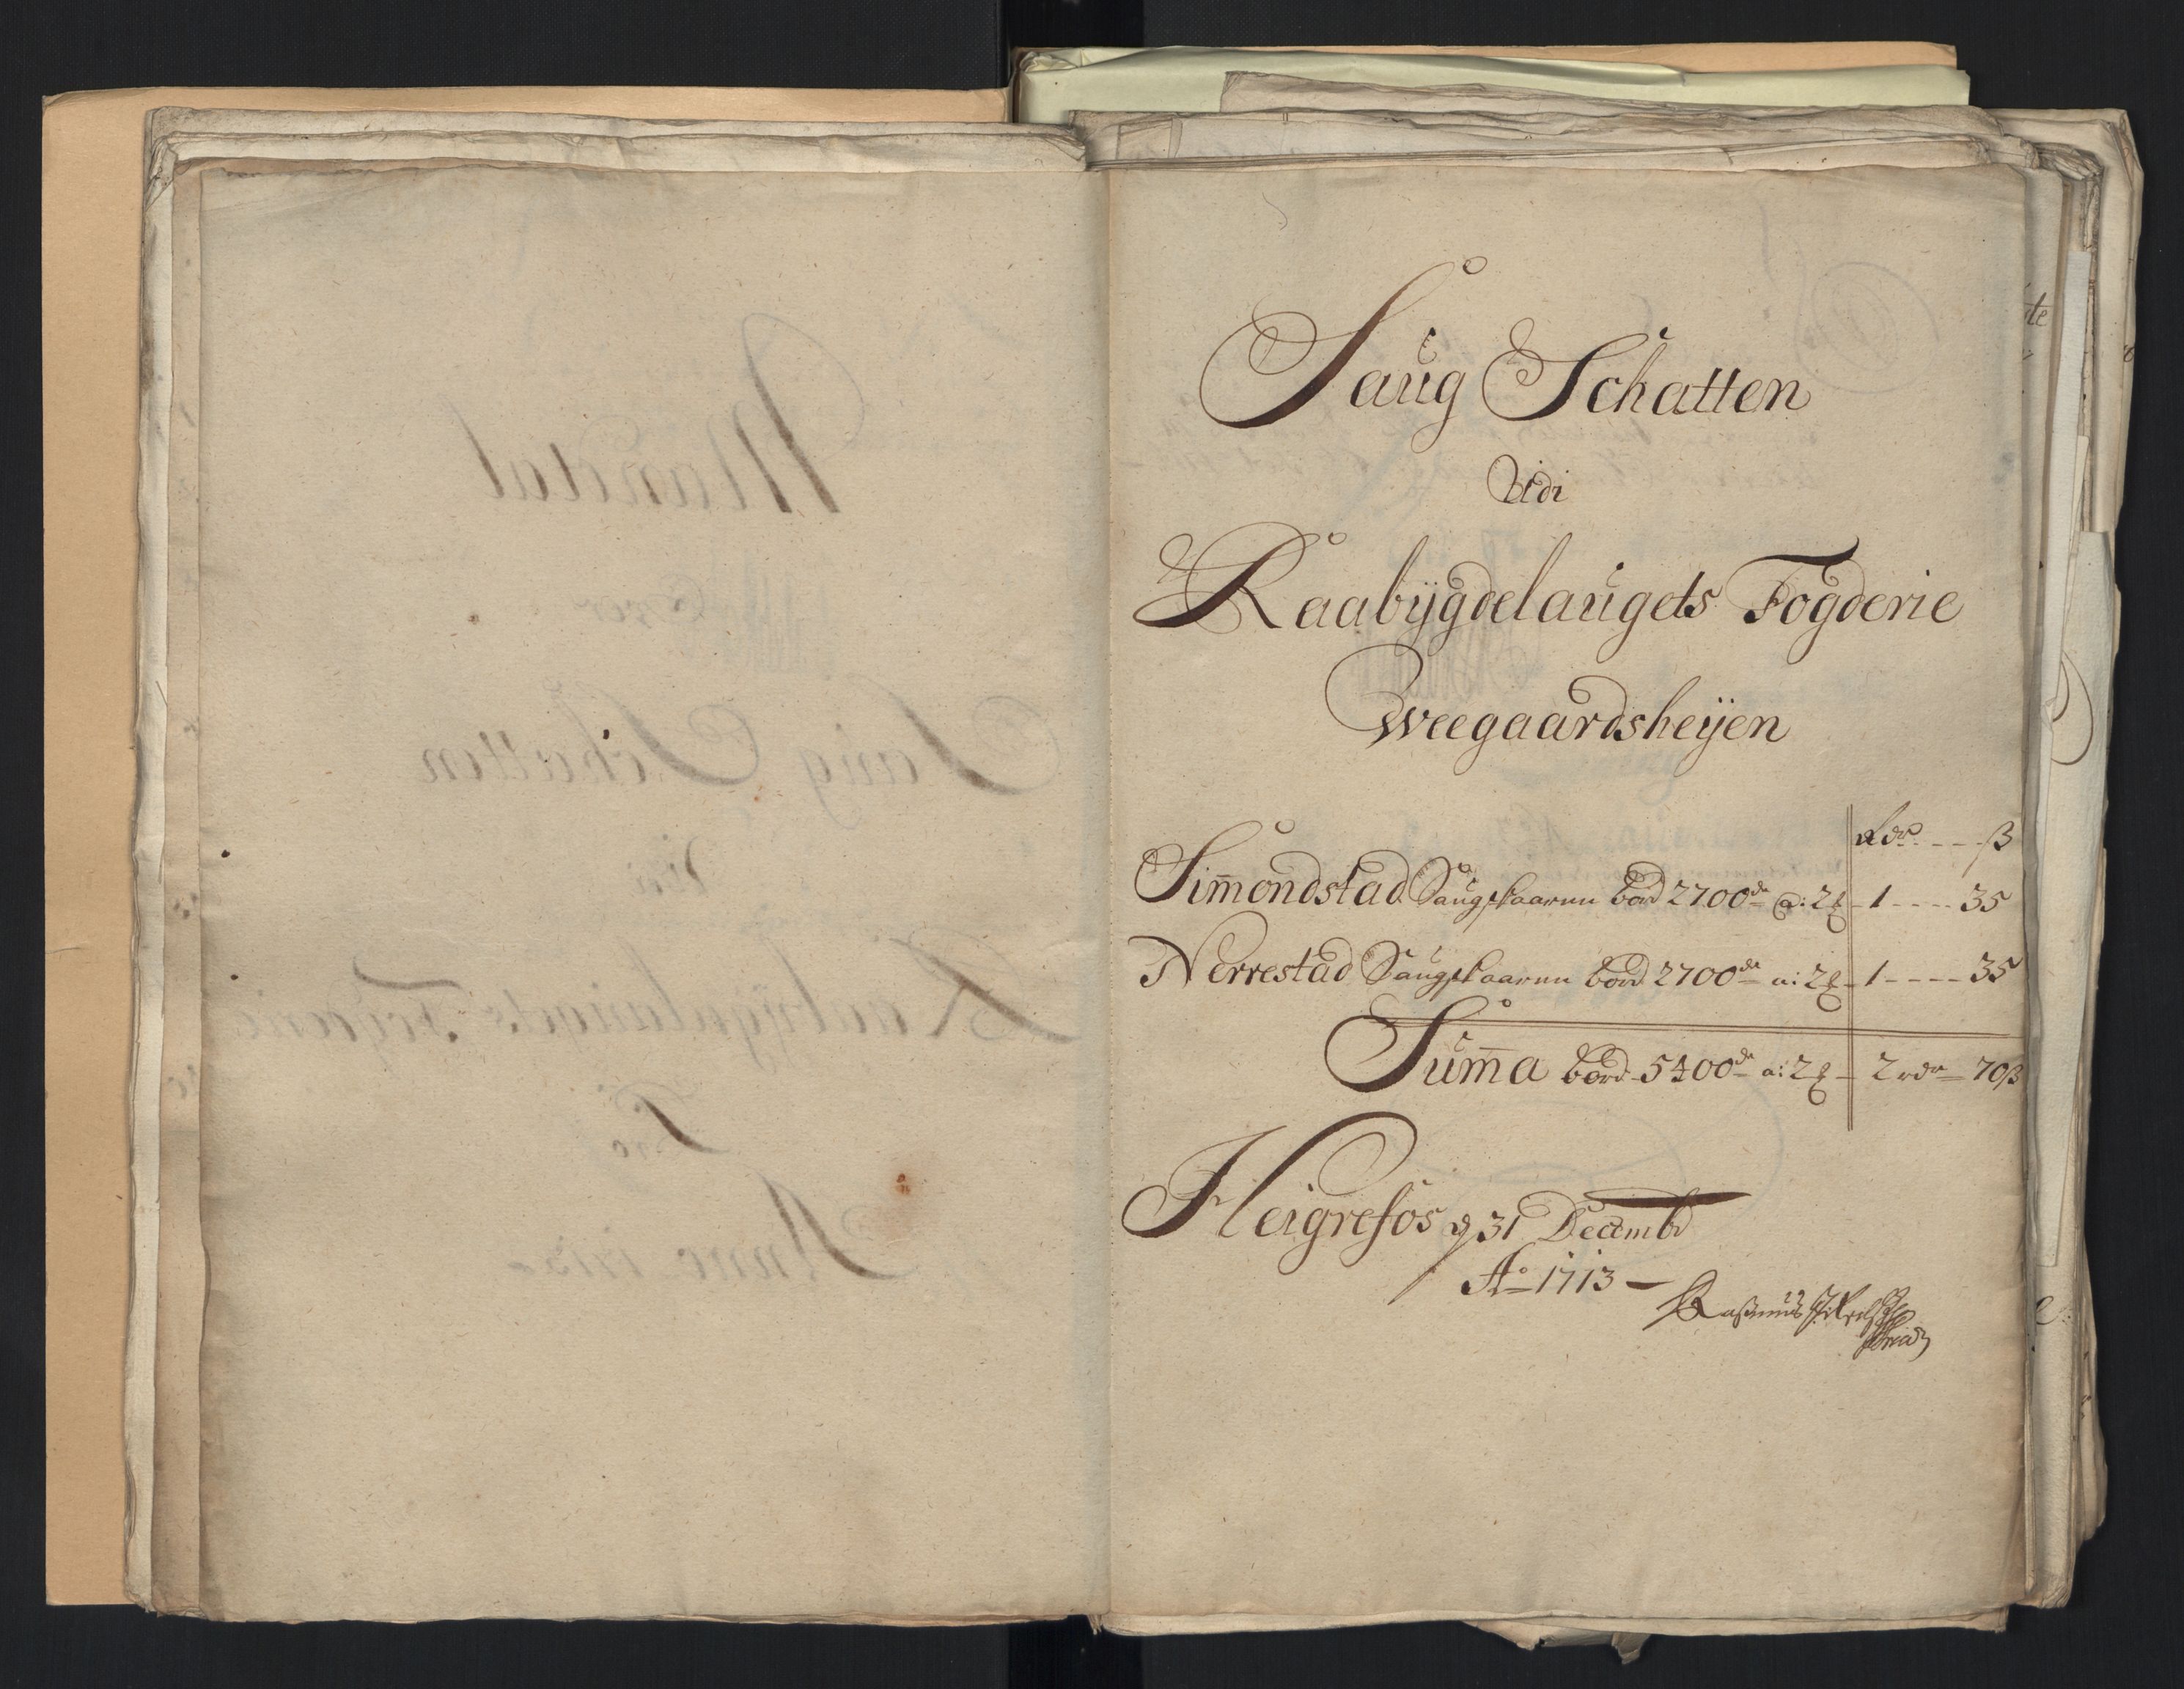 Saug Schatten
Udi
Raabygdelaugets Fogderie
Weegaardsheyen
Rdr ---- ß
Simondstad Saugskaarne bord 2700 de a: 2 ß 1 ---- 35
Nerrestad Saugskaarne bord 2700 de a: 2 ß 1 ---- 35
Suma bord 5400 de a: 2 ß 2 rdr 70 ß
Heigrefos d 31 Decembr
Ao 1713
Rasmus